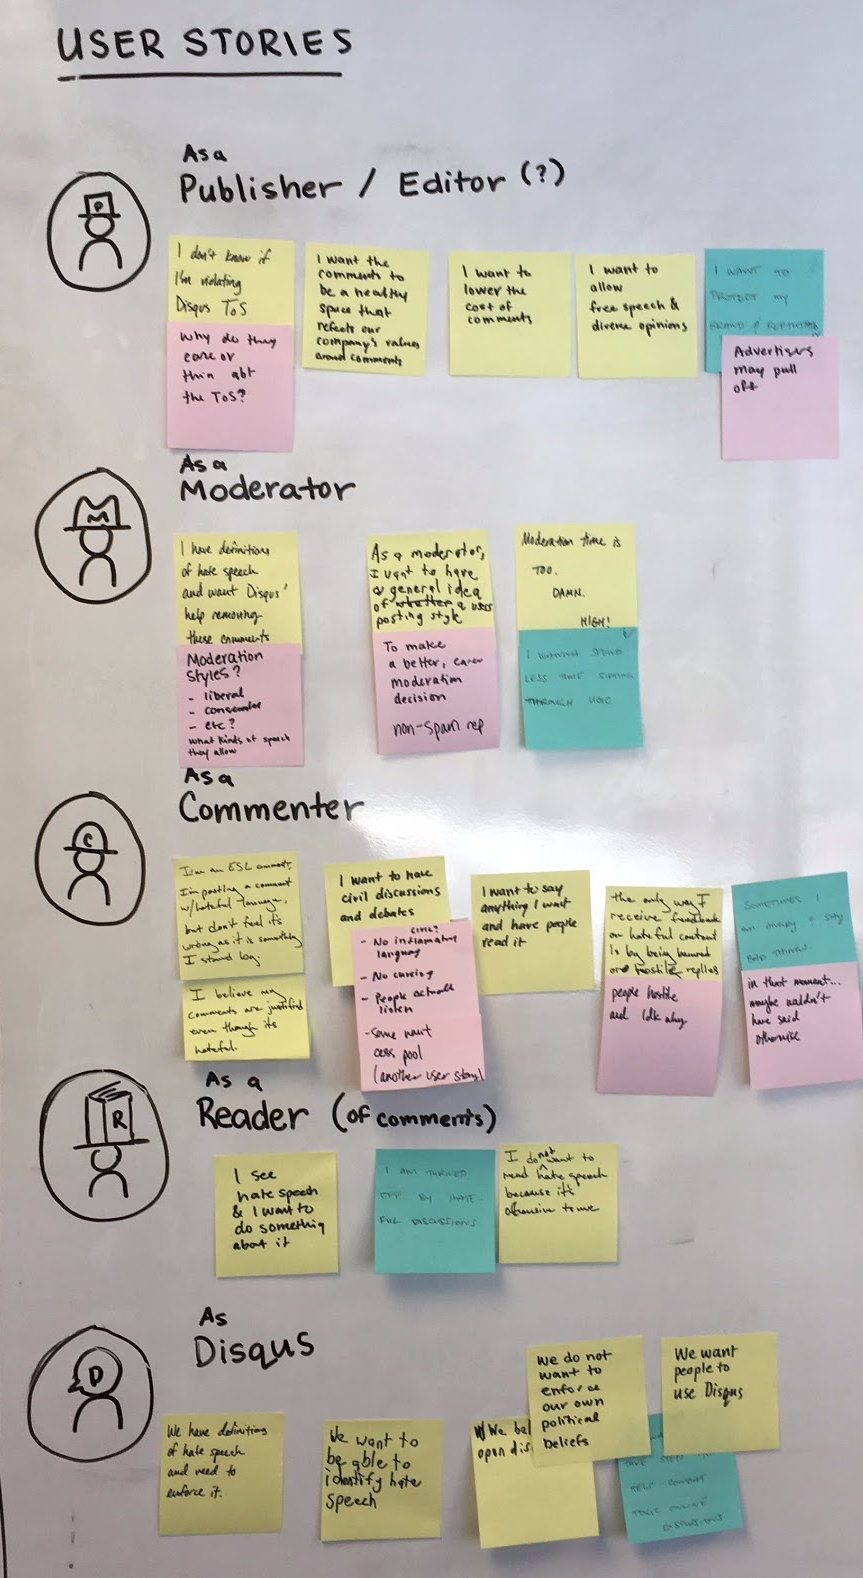 USER STORIES
As a
Publisher / Editor (?)
P
I don't know if
I'm violating
Disqus ToS
Why do they
care or
thin abt
the ToS?
I want the
comments to
be a healthy
space that
reflects our
company's values
around comments
I want to
lower the
cost of
comments
I want to
allow
free speech &
diverse opinions
I WANT TO
PROTECT MY
BRAND & REPUTATION
Advertisers
may pull
off
As a
Moderator
M
I have definitions
of hate speech
and want Disqus'
help removing
these comments
Moderation
styles?
- liberal
- conservative
- etc?
what kinds of speech
they allow
As a moderator,
I want to have
a general idea
of whether a users
posting style
To make
a better, easier
moderation
decision
non-spam rep
Moderation time is
TOO.
DAMN.
HIGH!
I WANNA SPEND
LESS TIME
THROUGH UGC
As a
Commenter
C
I'm an ESL commenter,
I'm posting a comment
w/hateful language,
but don't feel it's
wrong as it is something
I stand by.
I believe my
comments are justified
even though its
hateful.
I want to have
civil discussions
and debates
CIVIL?
- No inflamatory
language
- No cursing
- People actually
listen
- Some want
cess pool
(another user story)
I want to say
anything I want
and have people
read it
the only way I
receive feedback
on hateful content
is by being banned
or hostile replies
people hostile
and Idk why
SOMETIMES I
AM ANGRY & SAY
BAD THINGS.
in that moment...
maybe wouldn't
have said
otherwise
As a
Reader (of comments)
R
I see
hate speech
& I want to
do something
about it
I AM TURNED
OFF BY HATE
FUL DISCUSSIONS
I do not want to
read hate speech
because it's
offensive to me
As
Disqus
D
We have definitions
of hate speech
and need to
enforce it.
We want to
be able to
identify hate
speech
We bel
open dis
We do not
want to
enforce
our own
political
beliefs
We want
people to
use Disqus
HELP COMBAT
TOXIC ONLINE
DISCUSSIONS